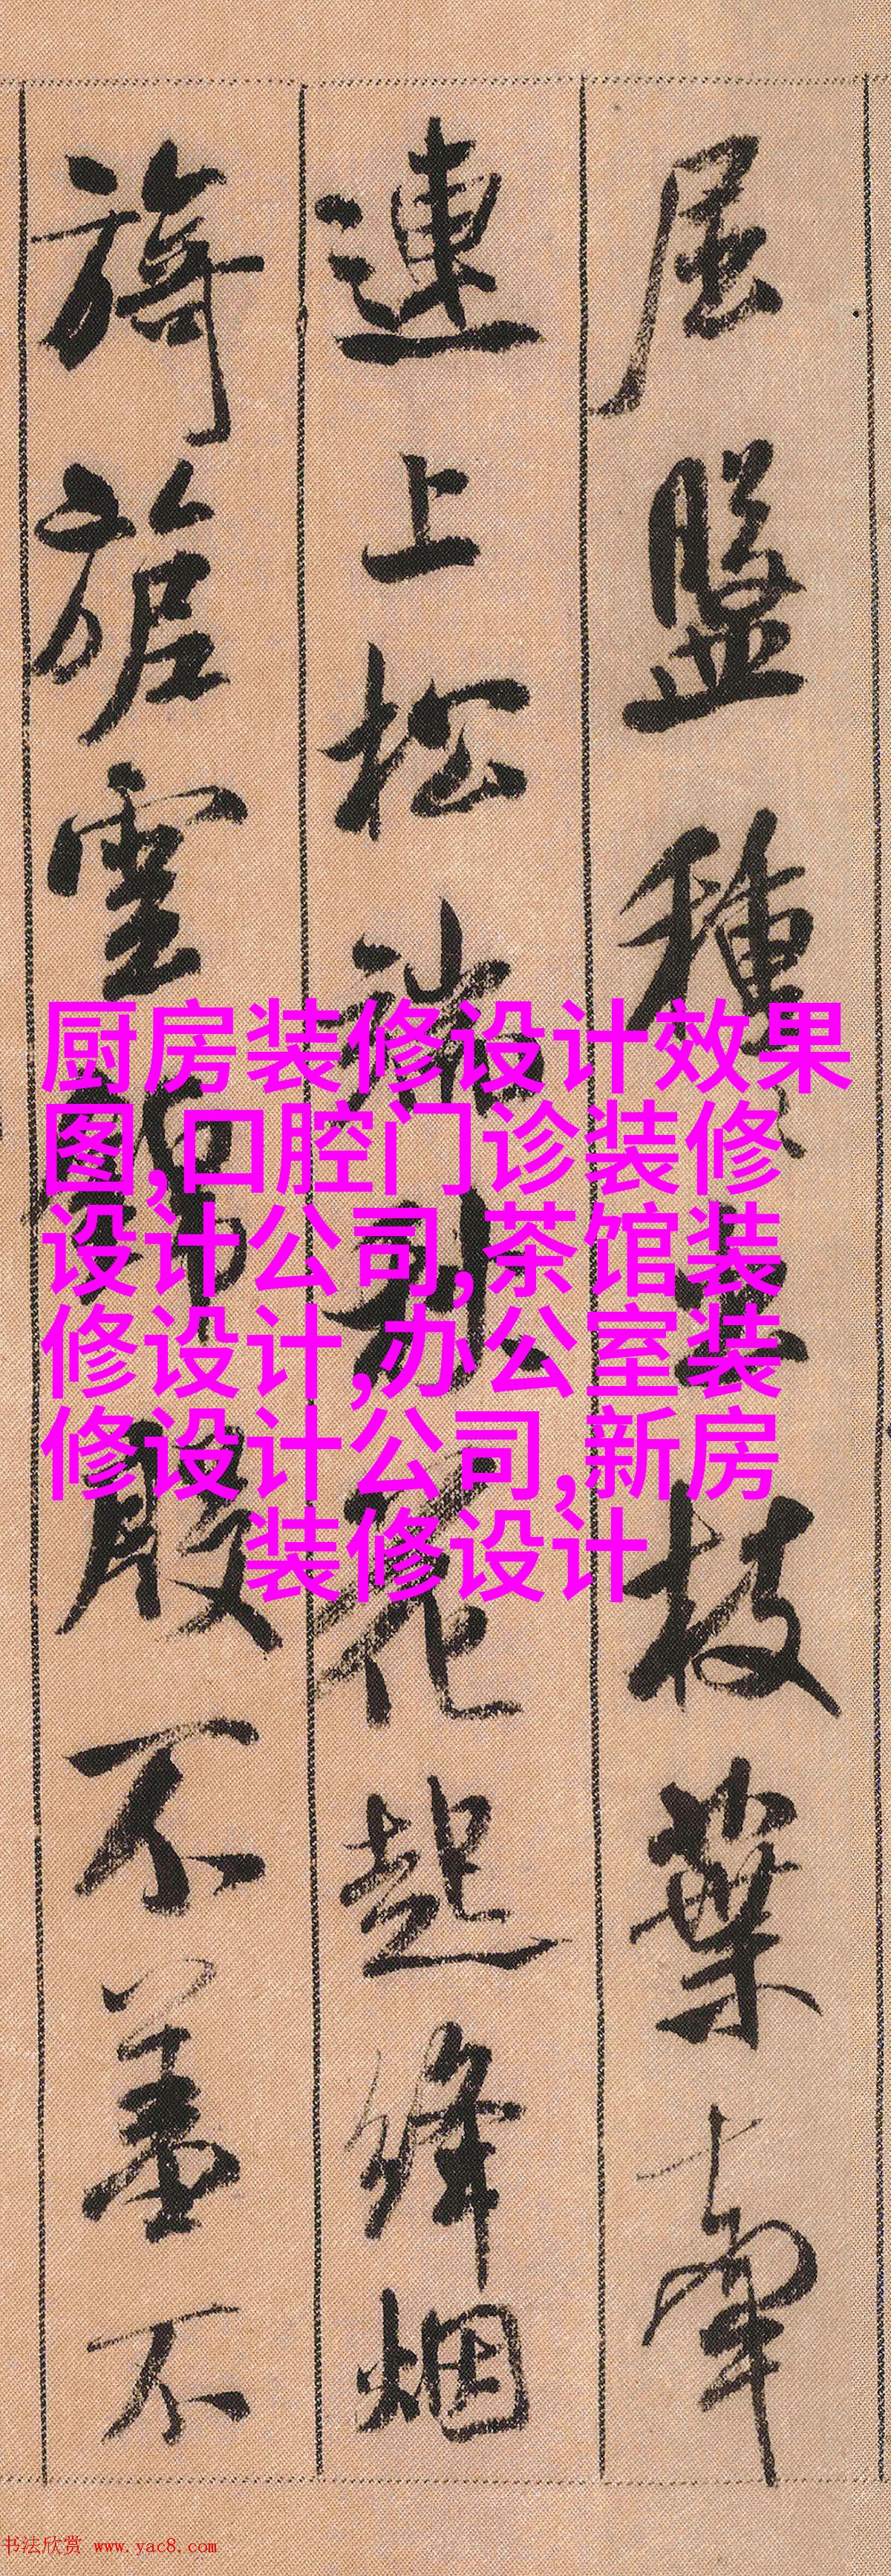 屈盤種〻出枝葉牽
連上松端秋花起絳烟
旖旎雲錦殷不羞不
厨房装修设计效果
图,口腔门诊装修
设计公司,茶馆装
修设计,办公室装
修设计公司,新房
装修设计
书法欣赏 www.yac8.com